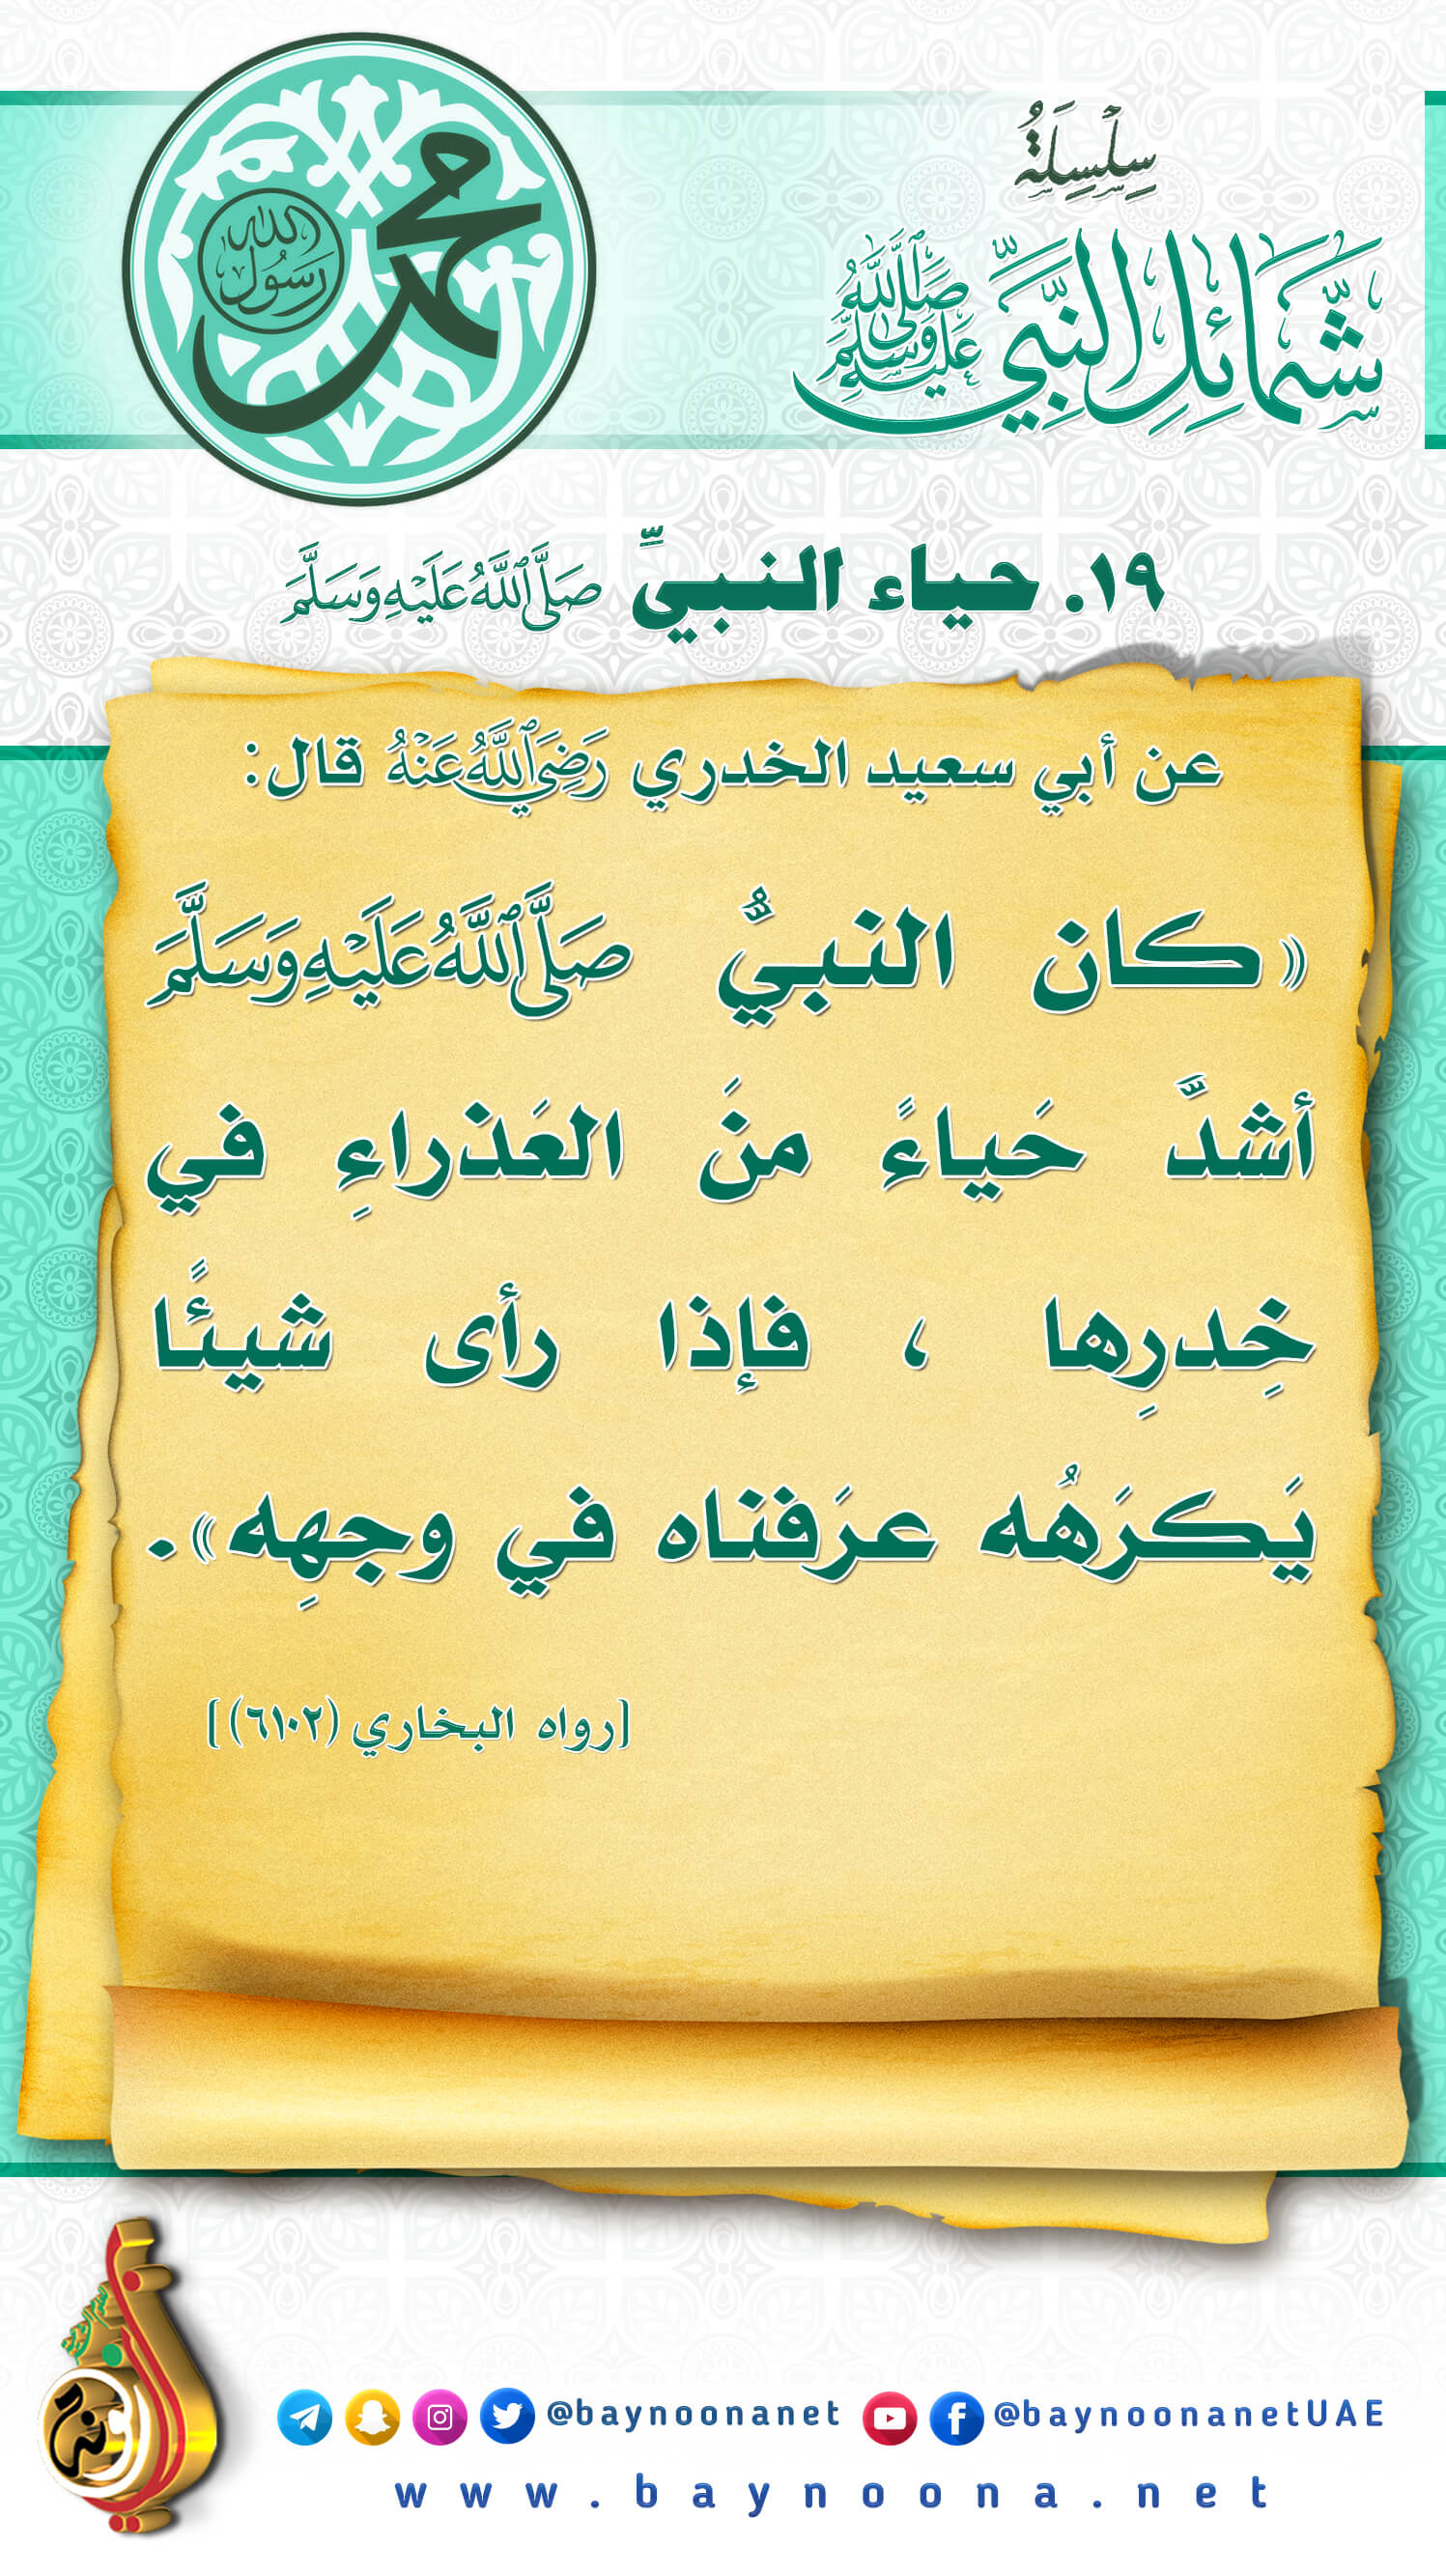 سِلْسِلَةُ
شَمَائِلِ النَّبِيِّ صَلَّى اللَّهُ عَلَيْهِ وَسَلَّمَ
محمد
رَسُول
الله
١٩. حياء النبيِّ صَلَّى اللَّهُ عَلَيْهِ وَسَلَّمَ
عن أبي سعيد الخدري رَضِيَ اللَّهُ عَنْهُ قال:
«كان النبيُّ صَلَّى اللَّهُ عَلَيْهِ وَسَلَّمَ
أشدَّ حَياءً منَ العَذراءِ في
خِدرِها ، فإذا رأى شيئًا
يَكرَهُه عرَفناه في وجهِه».
[رواه البخاري (٦١٠٢)]
@baynoonanet @baynoonanetUAE
www.baynoona.net